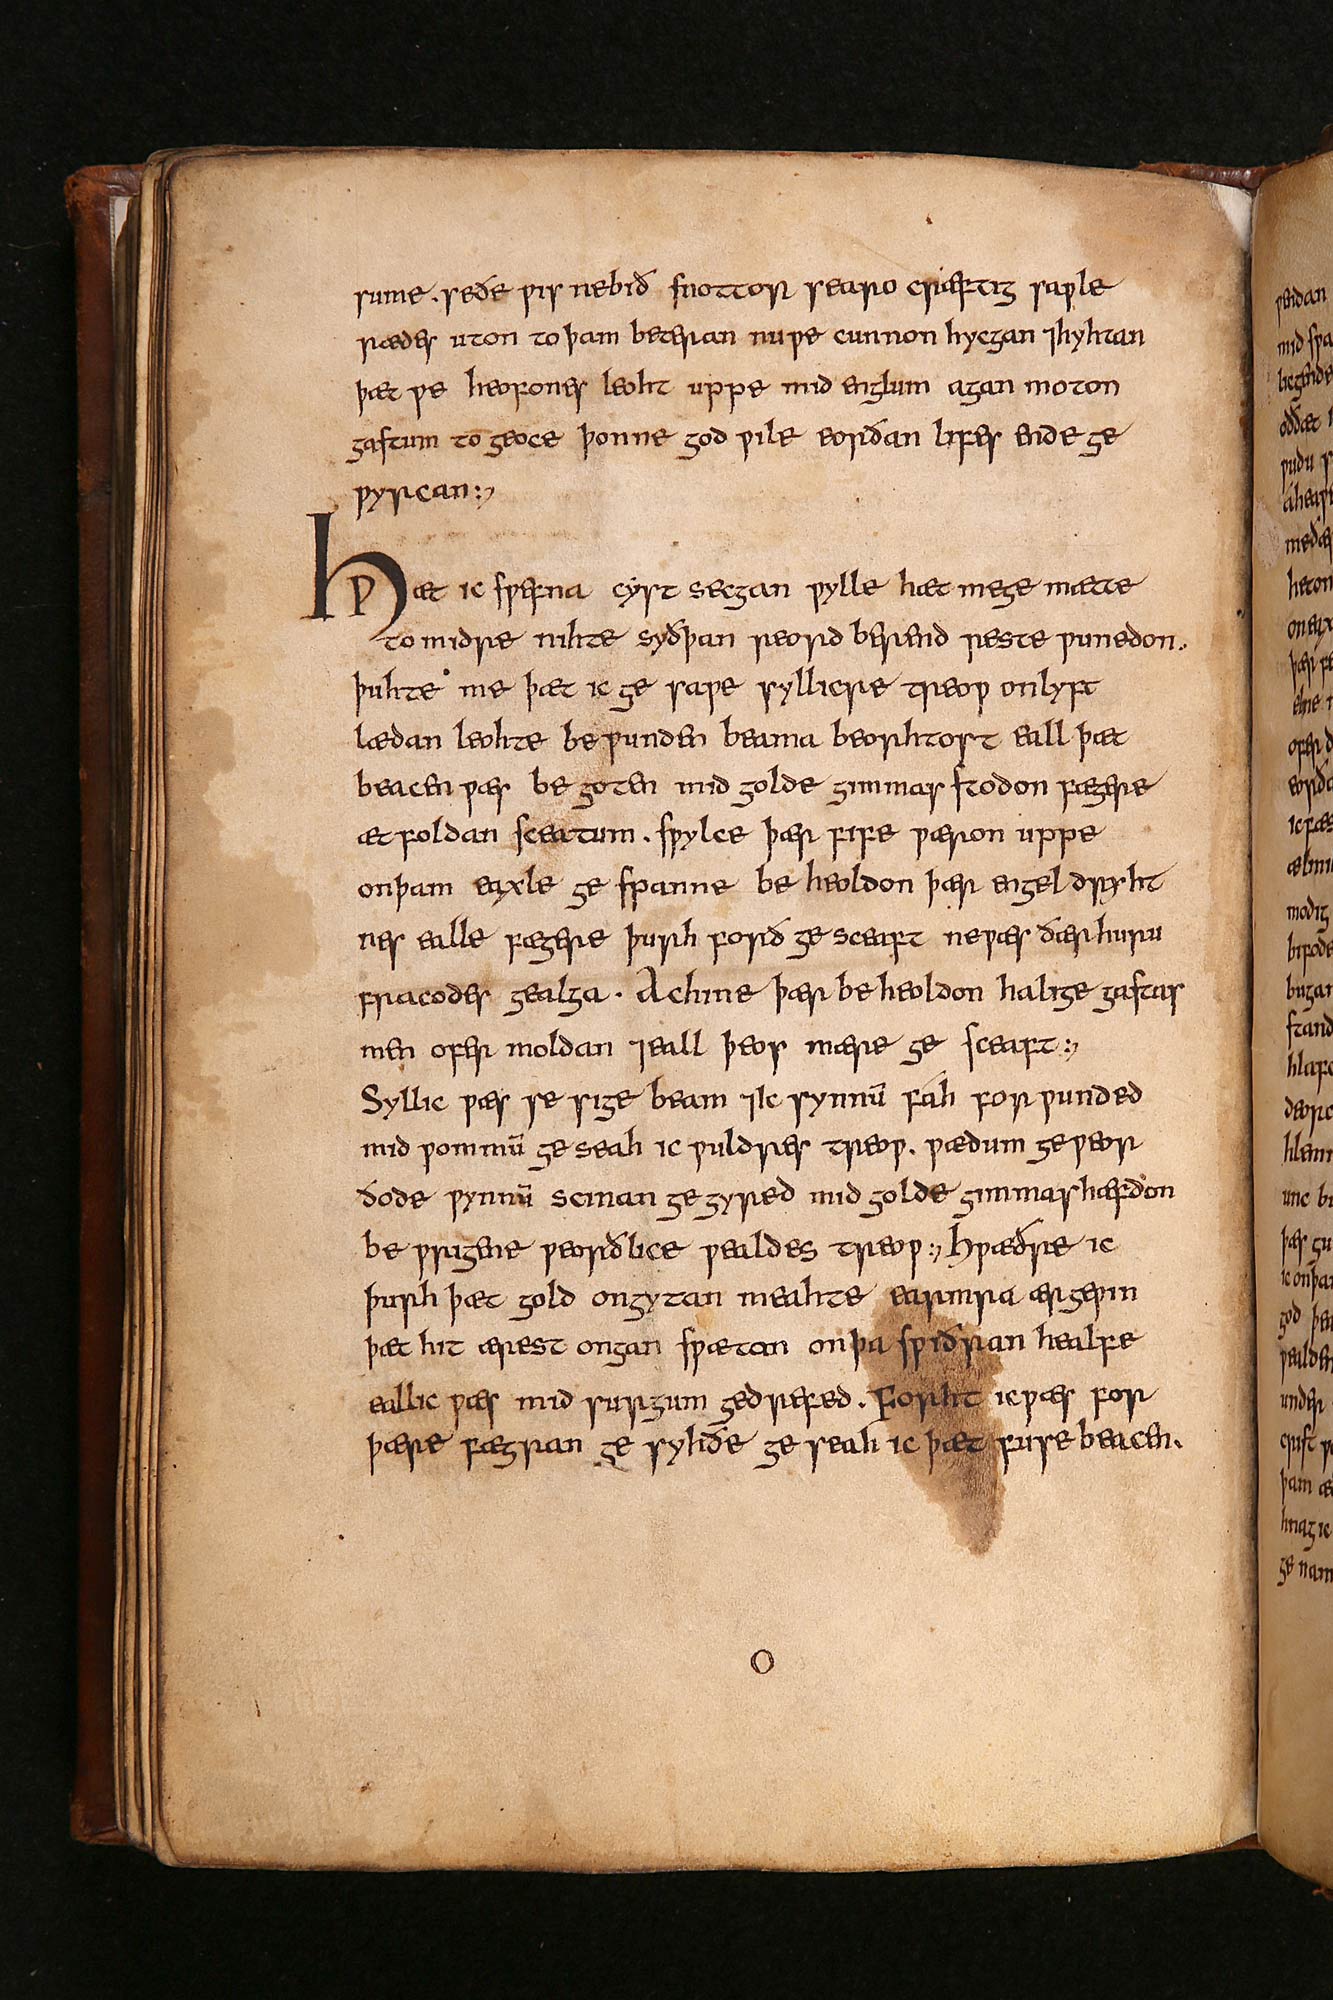 sume . seðe ƿis nebið snottor searo cræftig saƿle
rædes uton to þam beteran nuƿe cunnon hycgan ⁊hyhtan
þæt ƿe heofones leoht uppe mid englum agan moton
gastum to geoce þonne god ƿile eorðan lifes ende ge
ƿyrcan :,
Hƿæt ic sƿefna cyst secgan ƿylle hæt mege mætte
to midre nihte syðþan reord berend reste ƿunedon.,
þuhte me þæt ic ge saƿe syllicre treoƿ onlyft
lædan leohte be ƿunden beama beorhtost eall þæt
beacen ƿæs be goten mid golde gimmas stodon fægere
æt foldan sceatum . sƿylce þær fife ƿæron uppe
onþam eaxle ge spanne be heoldon þær engel dryht
nes ealle fægere þurh forð ge sceaft neƿæs ðær huru
fracodes gealga . Achine þær be heoldon halige gastas
men ofer moldan ⁊eall þeos mære ge sceaft :,
Syllic ƿæs se sige beam ⁊ic synnū fáh for ƿunded
mid ƿommū ge seah ic ƿuldres treoƿ . ƿædum ge ƿeor
ðode ƿynnū scinan ge gyred mid golde gimmas hæfdon
be ƿrigene ƿeorðlice ƿealdes treoƿ :, Hƿæðre ic
þurh þæt gold ongytan meahte earmra ærgeƿin
þæt hit ærest ongan sƿætan onþa sƿiðran healfe
eallic ƿæs mid surgum gedrefed . Forht ic ƿæs for
þære fægran ge syhðe ge seah ic þæt fuse beacen .
ƿendan
mid
licgende
ƿudu